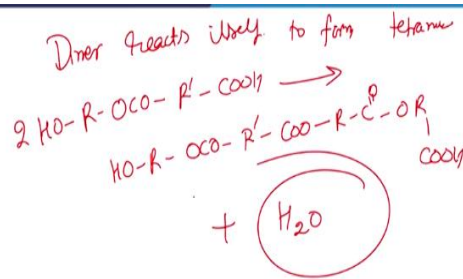 Dimer reacts itself to form tetramer
2 HO-R-OCO-R'-COOH ⟶
HO-R-OCO-R'-COO-R-C-OR
O
COOH
+ H₂O